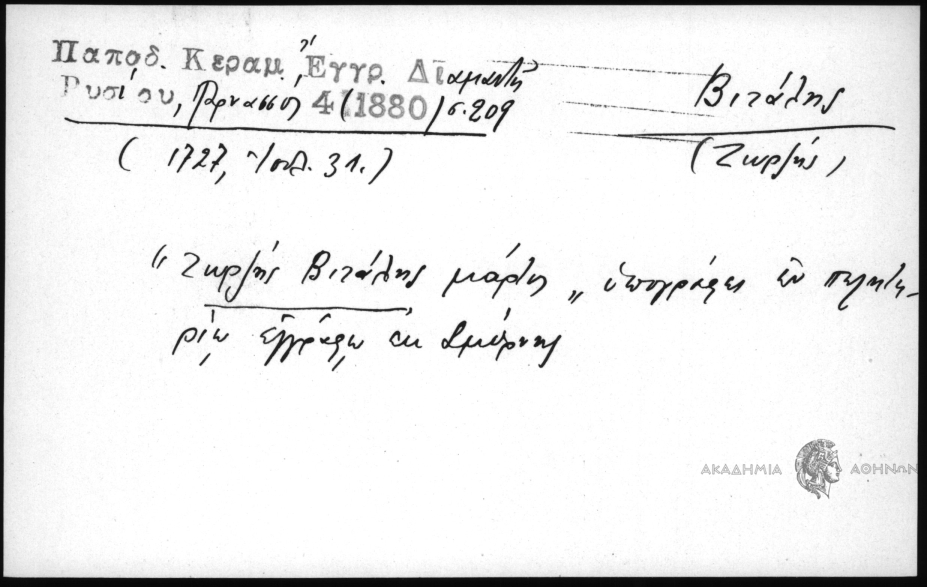 Παπαδ. Κεραμ, Ἔγγρ. Διαμαντῆ
Ρυσίου, Παρνασσός 4 (1880) σ. 209
Βιτάλης
(1727, Ἰουλ. 31.)
(Τζωρζής)
"Τζωρζής Βιτάλης μάρτυς„ ὑπογράφει ἐν πωλητη-
ρίῳ ἐγγράφῳ ἐκ Σμύρνης
ΑΚΑΔΗΜΙΑ ΑΘΗΝΩΝ